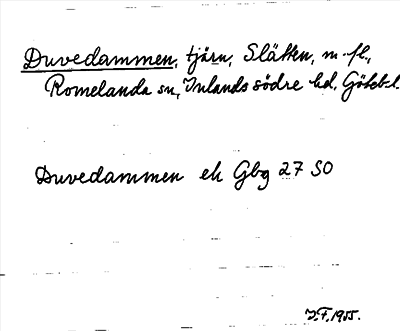 Duvedammen, tjärn, Slätten, m. fl.,
Romelanda sn, Inlands södre hd, Göteb. l.
Duvedammen ek Gbg 27 SO
J.F. 1955.